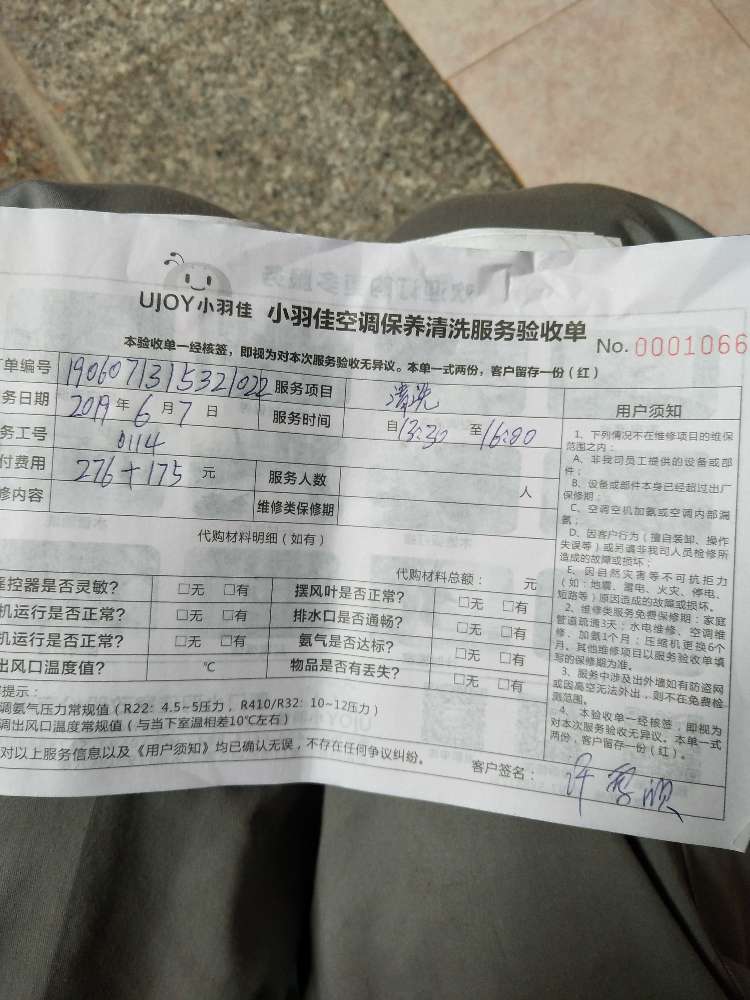 UJOY小羽佳 小羽佳空调保养清洗服务验收单
No. 0001066
本验收单一经核签，即视为对本次服务验收无异议。本单一式两份，客户留存一份（红）
单编号 190607315321022 服务项目 清洗
务日期 2019年6月7日 服务时间 自13:30至16:00
务工号 0114
付费用 276+175元 服务人数 人
修内容 维修类保修期
代购材料明细（如有）
代购材料总额： 元
控器是否灵敏？ □无 □有 摆风叶是否正常？ □无 □有
机运行是否正常？ □无 □有 排水口是否通畅？ □无 □有
机运行是否正常？ □无 □有 氨气是否达标？ □无 □有
出风口温度值？ ℃ 物品是否有丢失？ □无 □有
提示：
调氨气压力常规值（R22：4.5~5压力，R410/R32：10~12压力）
调出风口温度常规值（与当下室温相差10℃左右）
对以上服务信息以及《用户须知》均已确认无误，不存在任何争议纠纷。
客户签名：许
用户须知
1、下列情况不在维修项目的维保
范围之内：
A、非我司员工提供的设备或部
件；
B、设备或部件本身已经超过出厂
保修期；
C、空调空机加氨或空调内部漏
氨；
D、因客户行为（擅自装卸、操作
失误等）或另请非我司人员检修所
造成的故障或损坏；
E、因自然灾害等不可抗拒力
（如：地震、雷电、火灾、停电、
短路等）原因造成的故障或损坏。
2、维修类服务免费保修期：家庭
管道疏通3天；水电维修、空调维
修、加氨1个月；压缩机更换6个
月。其他维修项目以服务验收单填
写的保修期为准。
3、服务中涉及出外墙如有防盗网
或因高空无法外出，则不在免费检
测范围。
4、本验收单一经核签，即视为
对本次服务验收无异议。本单一式
两份，客户留存一份（红）。